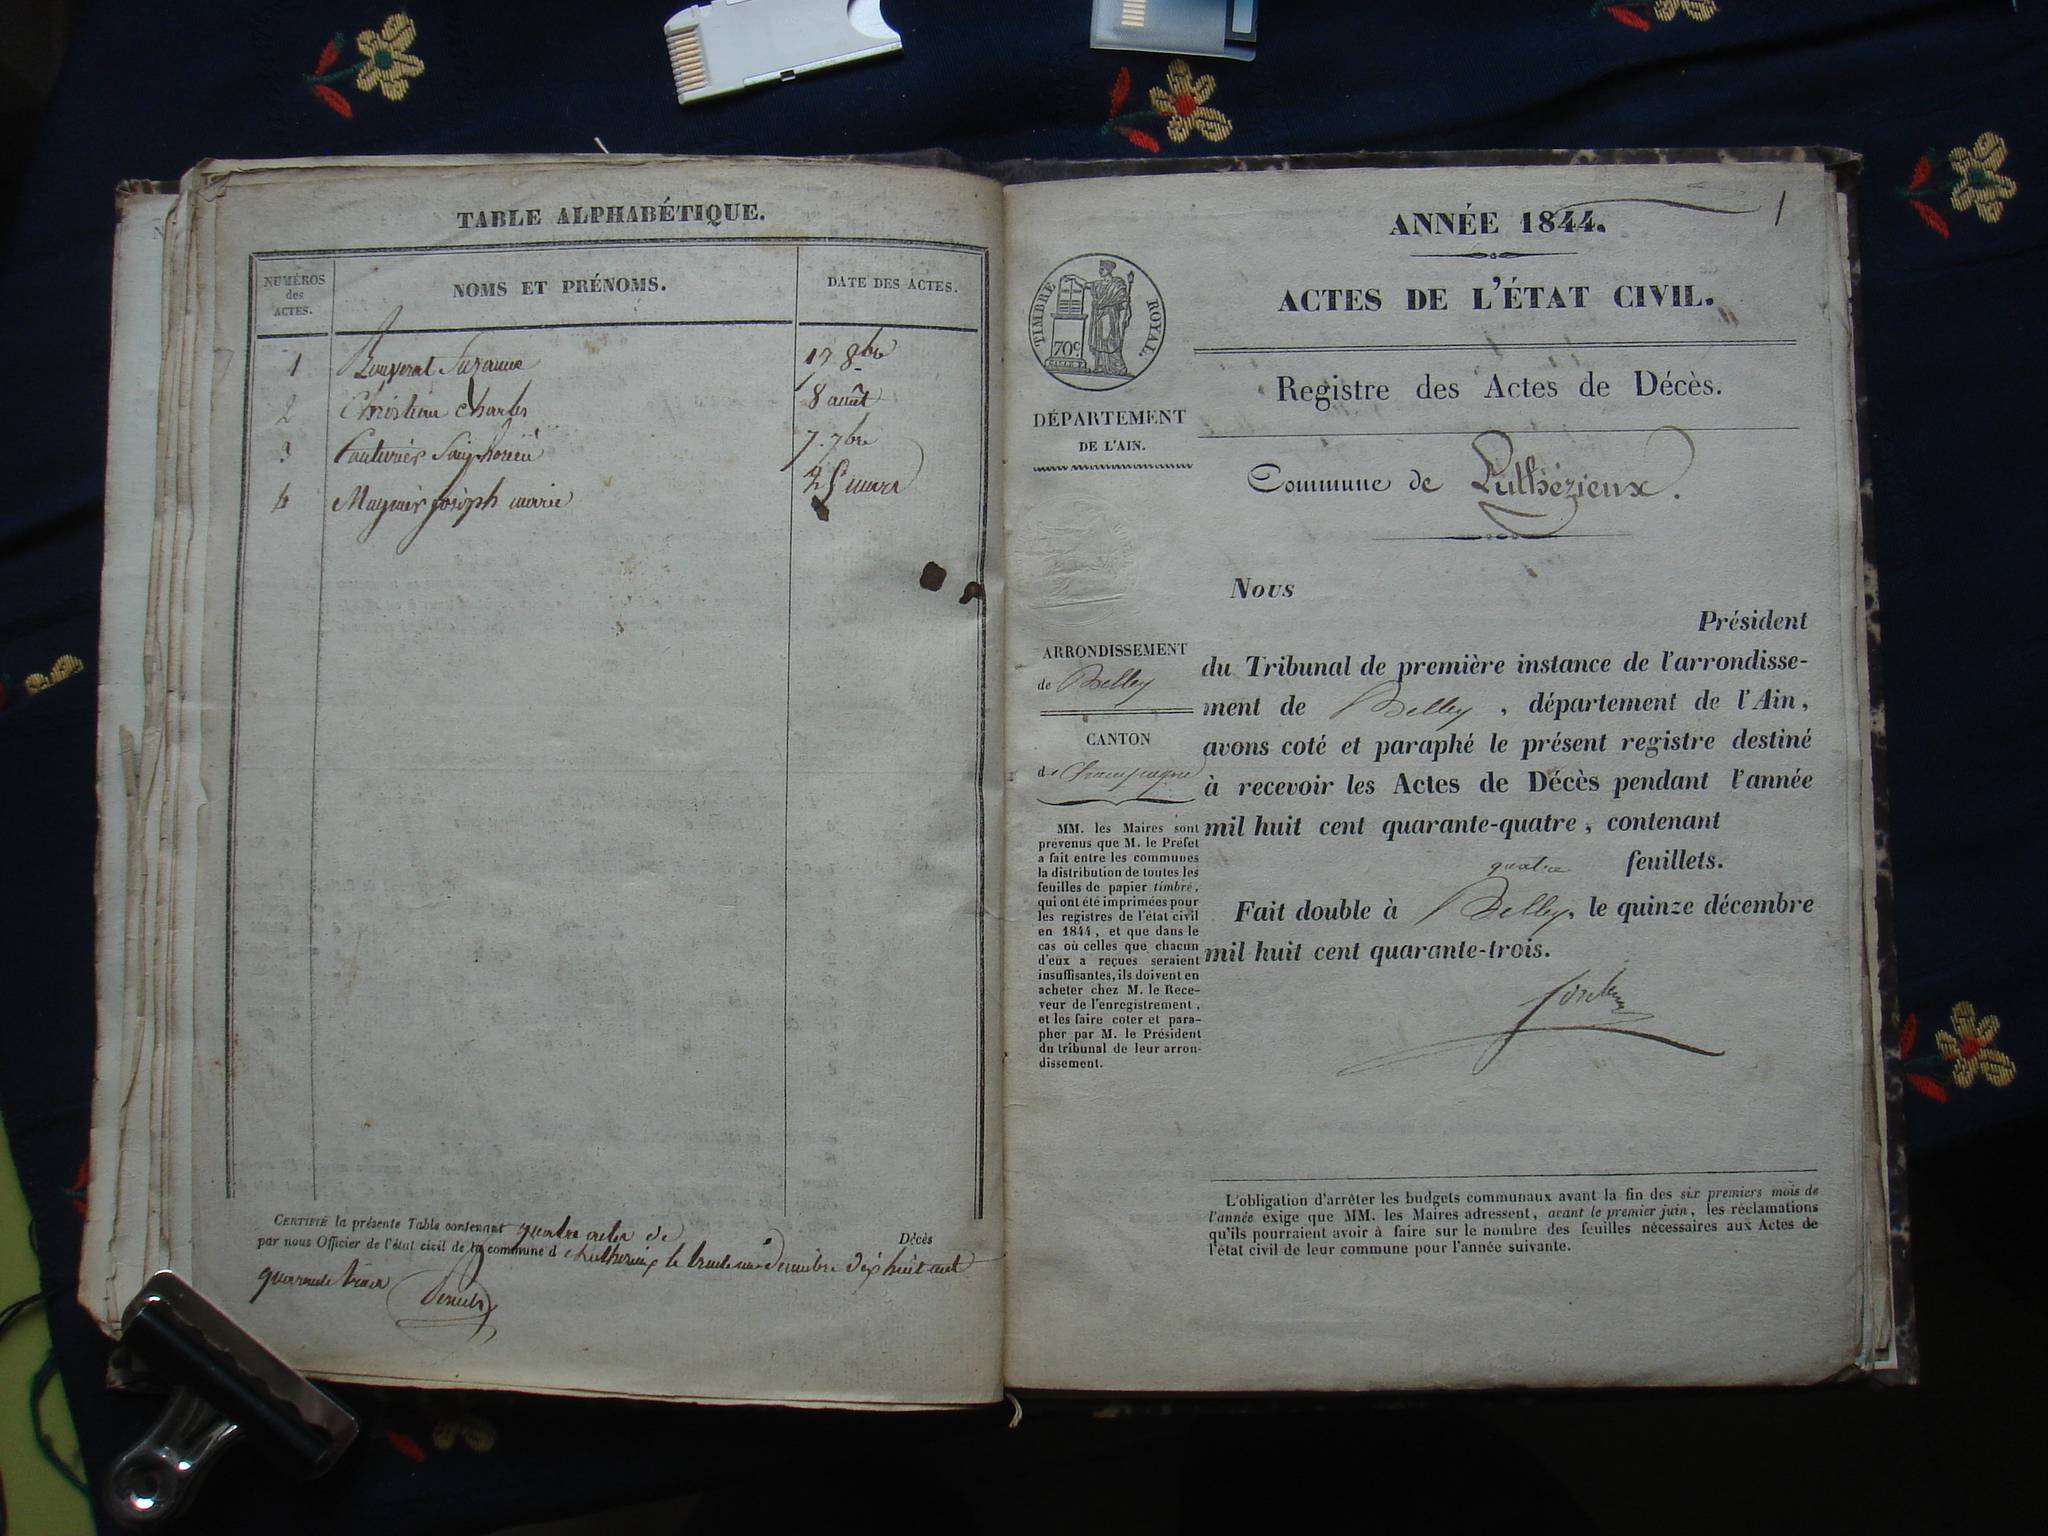 TABLE ALPHABÉTIQUE.
NUMÉROS
des
ACTES.
NOMS ET PRÉNOMS.
DATE DES ACTES.
1 Suzanne 17 8bre
2 Christian Charles 8 août
3 7. 7bre
4 Magnin joseph marie 25 mars
CERTIFIÉ la présente Table contenant quatre actes de Décès
par nous Officier de l'état civil de la commune d Luthezieux le trente un décembre dix huit cent
quarante trois
1
ANNÉE 1844.
ACTES DE L'ÉTAT CIVIL.
TIMBRE ROYAL.
70c
Registre des Actes de Décès.
DÉPARTEMENT
DE L'AIN.
Commune de Luthézieux.
Nous
Président
du Tribunal de première instance de l'arrondisse-
ment de Belley, département de l'Ain,
avons coté et paraphé le présent registre destiné
à recevoir les Actes de Décès pendant l'année
mil huit cent quarante-quatre, contenant
quatre feuillets.
Fait double à Belley, le quinze décembre
mil huit cent quarante-trois.
ARRONDISSEMENT
de Belley
CANTON
de Champagne
MM. les Maires sont
prévenus que M. le Préfet
a fait entre les communes
la distribution de toutes les
feuilles de papier timbré,
qui ont été imprimées pour
les registres de l'état civil
en 1844, et que dans le
cas où celles que chacun
d'eux a reçues seraient
insuffisantes, ils doivent en
acheter chez M. le Rece-
veur de l'enregistrement,
et les faire coter et para-
pher par M. le Président
du tribunal de leur arron-
dissement.
L'obligation d'arrêter les budgets communaux avant la fin des six premiers mois de
l'année exige que MM. les Maires adressent, avant le premier juin, les réclamations
qu'ils pourraient avoir à faire sur le nombre des feuilles nécessaires aux Actes de
l'état civil de leur commune pour l'année suivante.